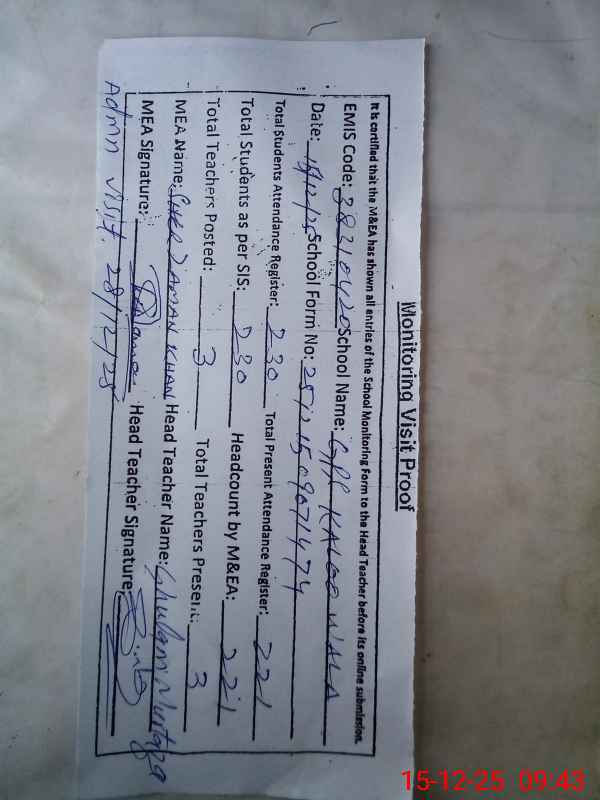 Monitoring Visit Proof
It is certified that the M&EA has shown all entries of the School Monitoring Form to the Head Teacher before its online submission.
EMIS Code: 38210420 School Name: GPS KALOO WALA
Date: 15/12/25 School Form No: 25121509071474
Total Students Attendance Register: 230 Total Present Attendance Register: 221
Total Students as per SIS: 230 Headcount by M&EA: 221
Total Teachers Posted: 3 Total Teachers Present: 3
MEA Name: SHER ZAMAN KHAN Head Teacher Name: Ghulam Murtaza
MEA Signature: Head Teacher Signature:
Admn visit. 28/12/25
15-12-25 09:43